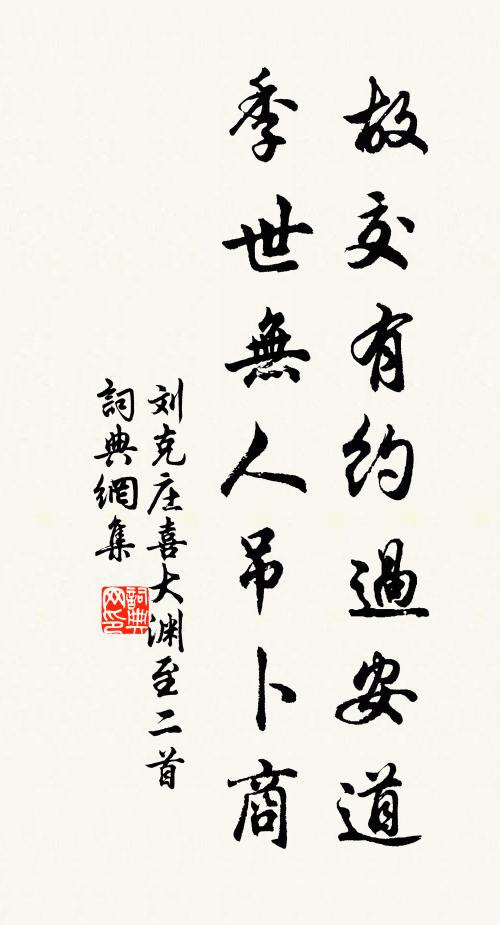 故交有約過安道
季世無人吊卜商
刘克庄喜大渊至二首
詞典網集
詞典
网印